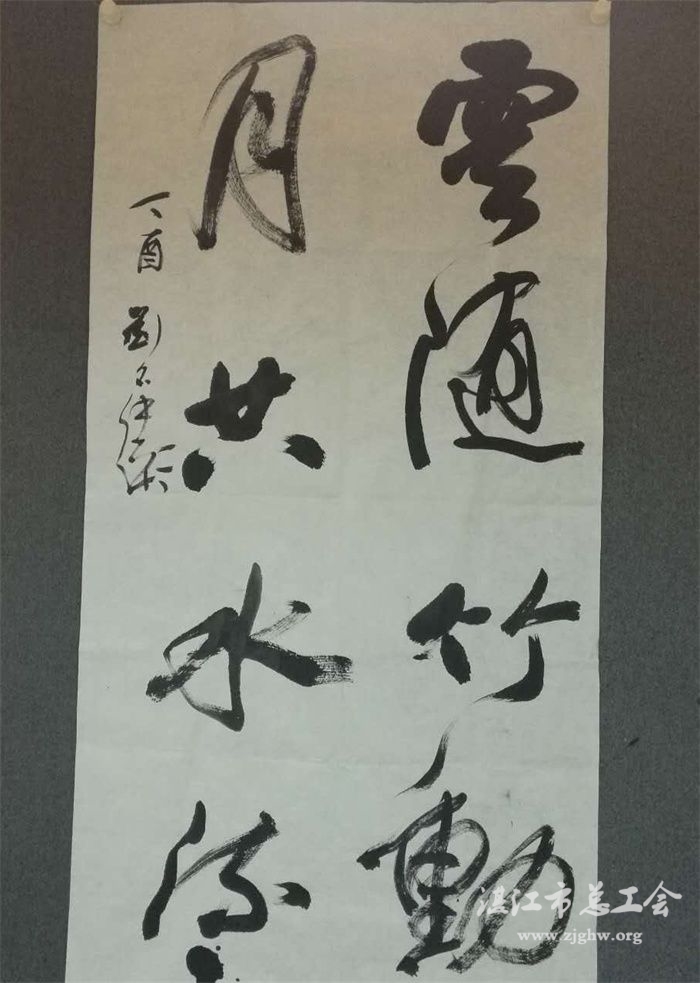 雲随竹動
月共水流
丁酉
湛江市总工会
www.zjghw.org